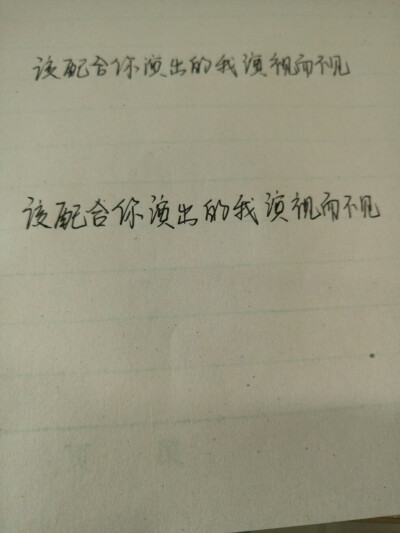 该配合你演出的我演视而不见
该配合你演出的我演视而不见